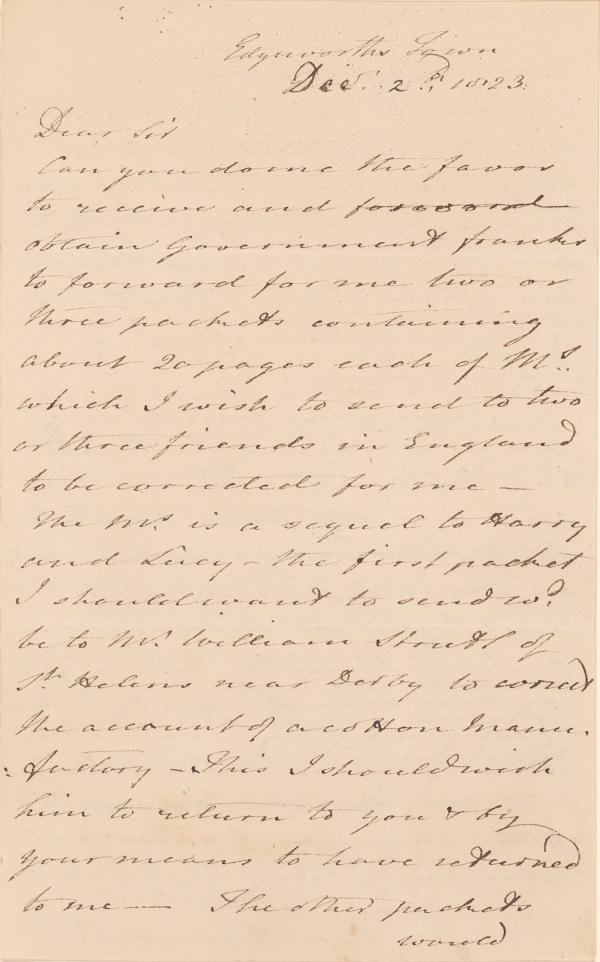 Edgeworths Town
Decr. 2d. 1823.
Dear Sir
Can you do me the favor
to receive and forward
obtain Government franks
to forward for me two or
three packets containing
about 20 pages each of Ms.
which I wish to send to two
or three friends in England
to be corrected for me —
The Ms. is a sequel to Harry
and Lucy - the first packet
I should want to send wd.
be to Mr. William Strutt of
St. Helens near Derby to correct
the account of a cotton manu-
:factory - This I should wish
him to return to you & by
your means to have returned
to me — The other packets
would